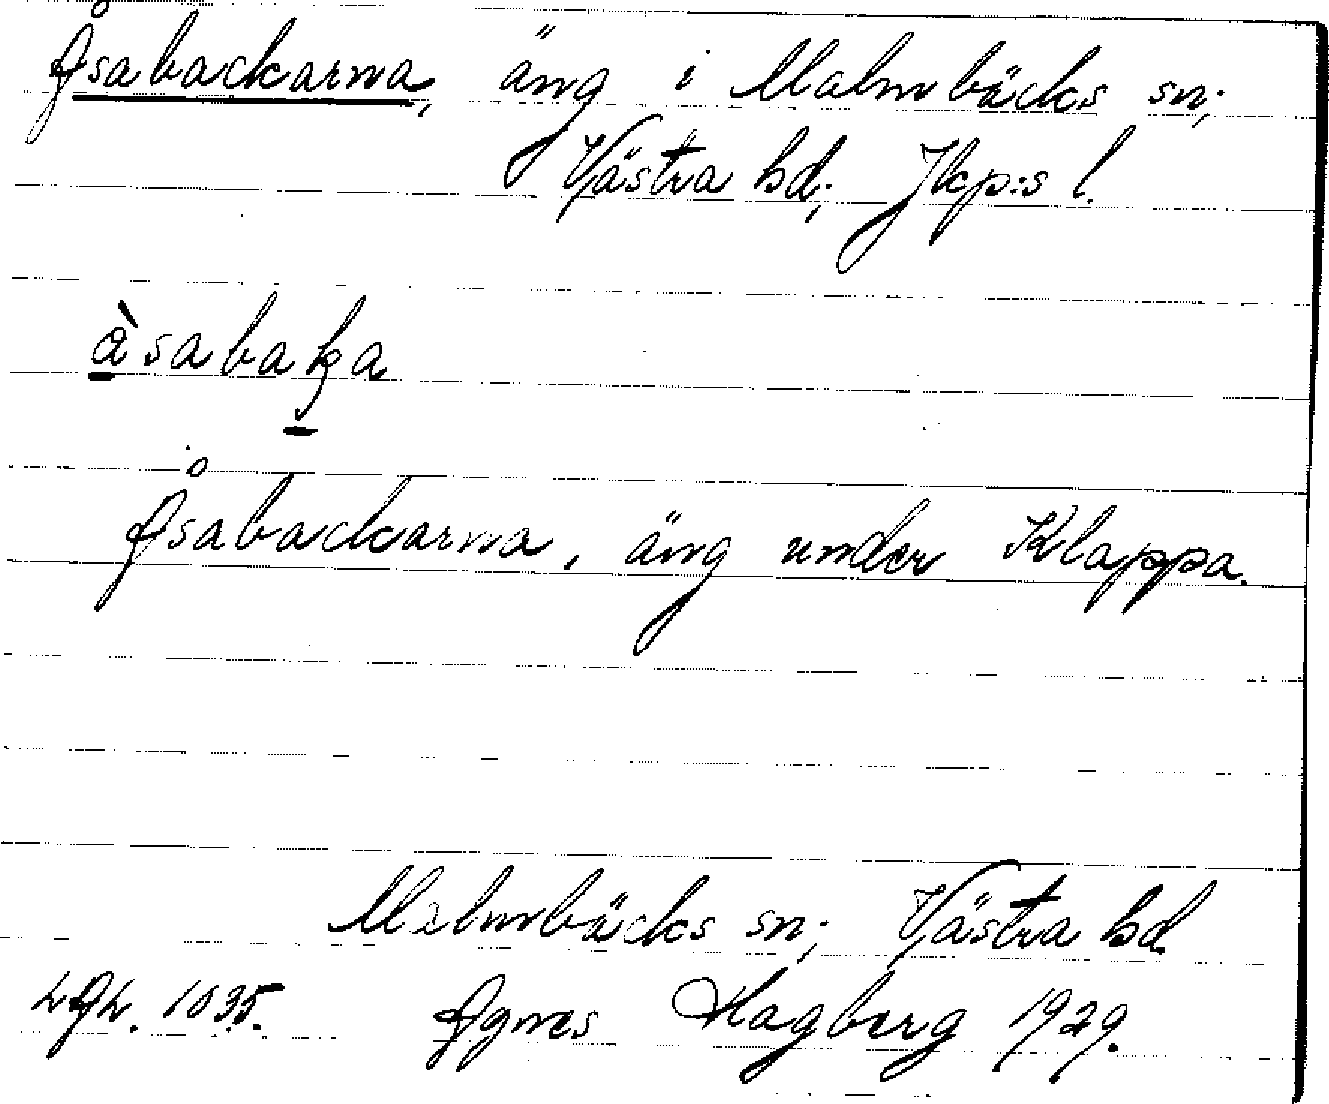 Åsabackarna, äng i Malmbäcks sn;
Västra hd; Jkp:s l.
àsabaka
Åsabackarna, äng under Klappa.
Malmbäcks sn; Västra hd
1035. Agnes Hagberg 1929.